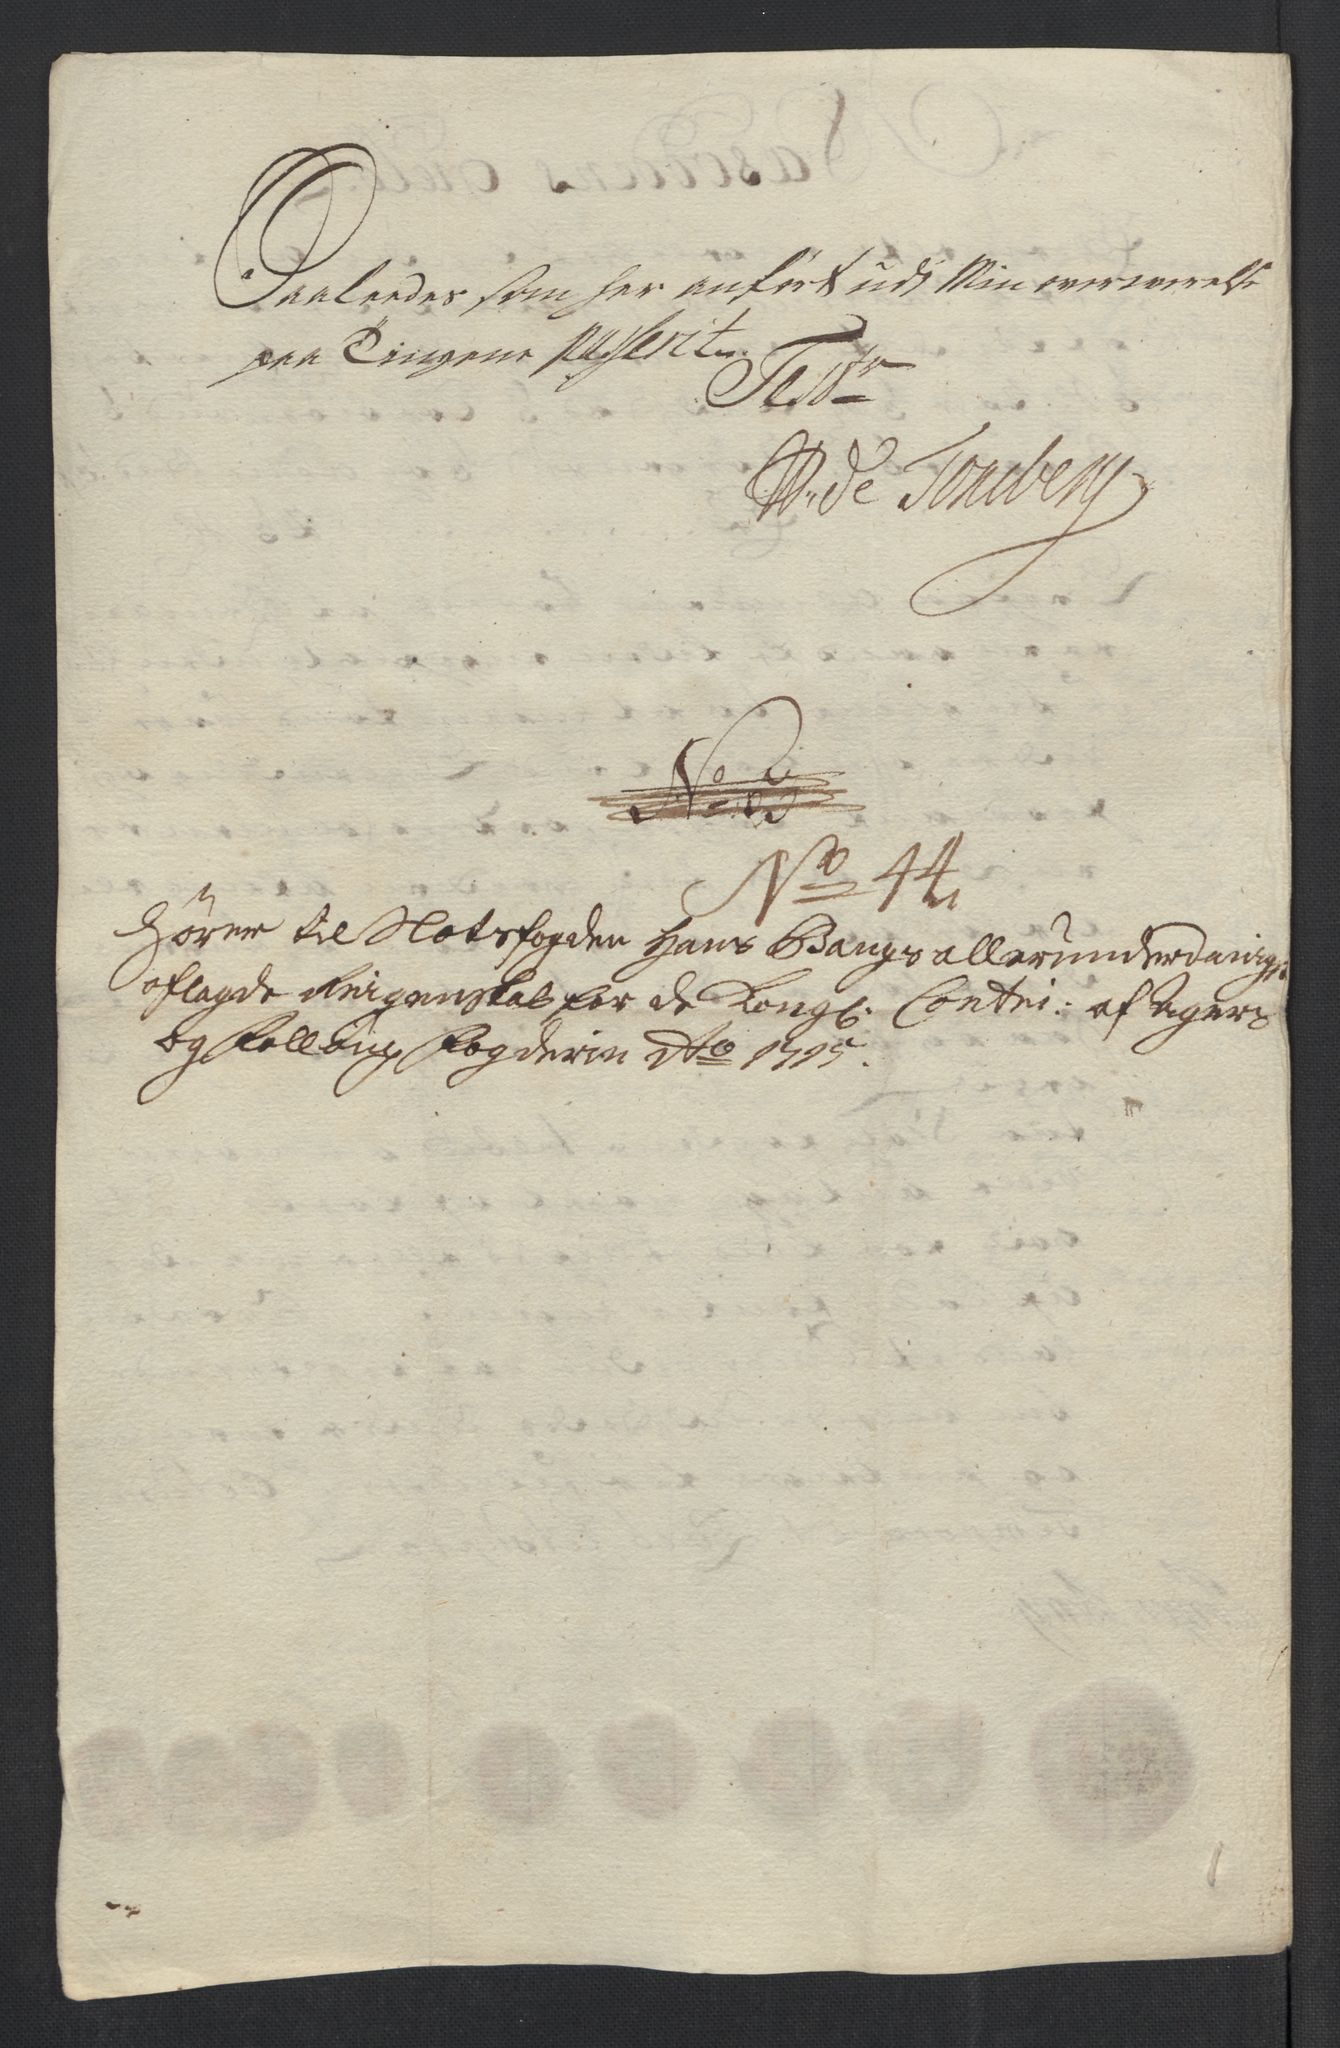 Saaleedes som her anført udj Min overwerelse
paa Tingene passerit
Test:
W: de Tonsberg
No 2
No 44
Hører til Slotsfogden Hans Bangs allerunderdanigst
aflagde Reigenskab for de Kongl: Contri: af Agers
og Folloug Fogderier Ao 1715.